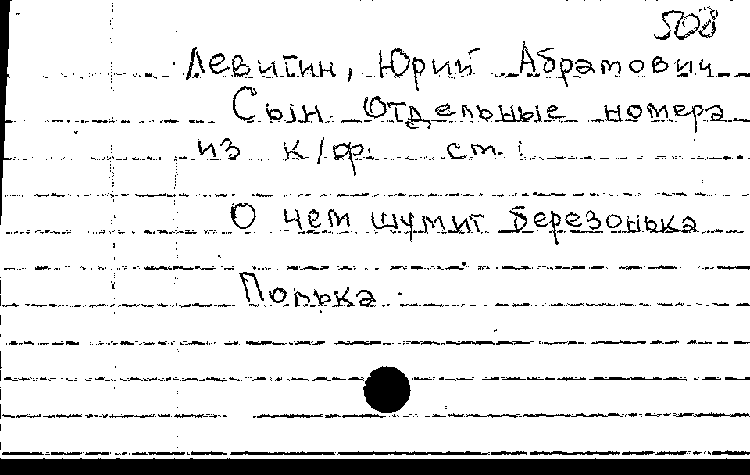 508
Левитин, Юрий Абрамович
Сын Отдельные номера
из к/ф. ст.:
О чем шумит березонька
Полька.